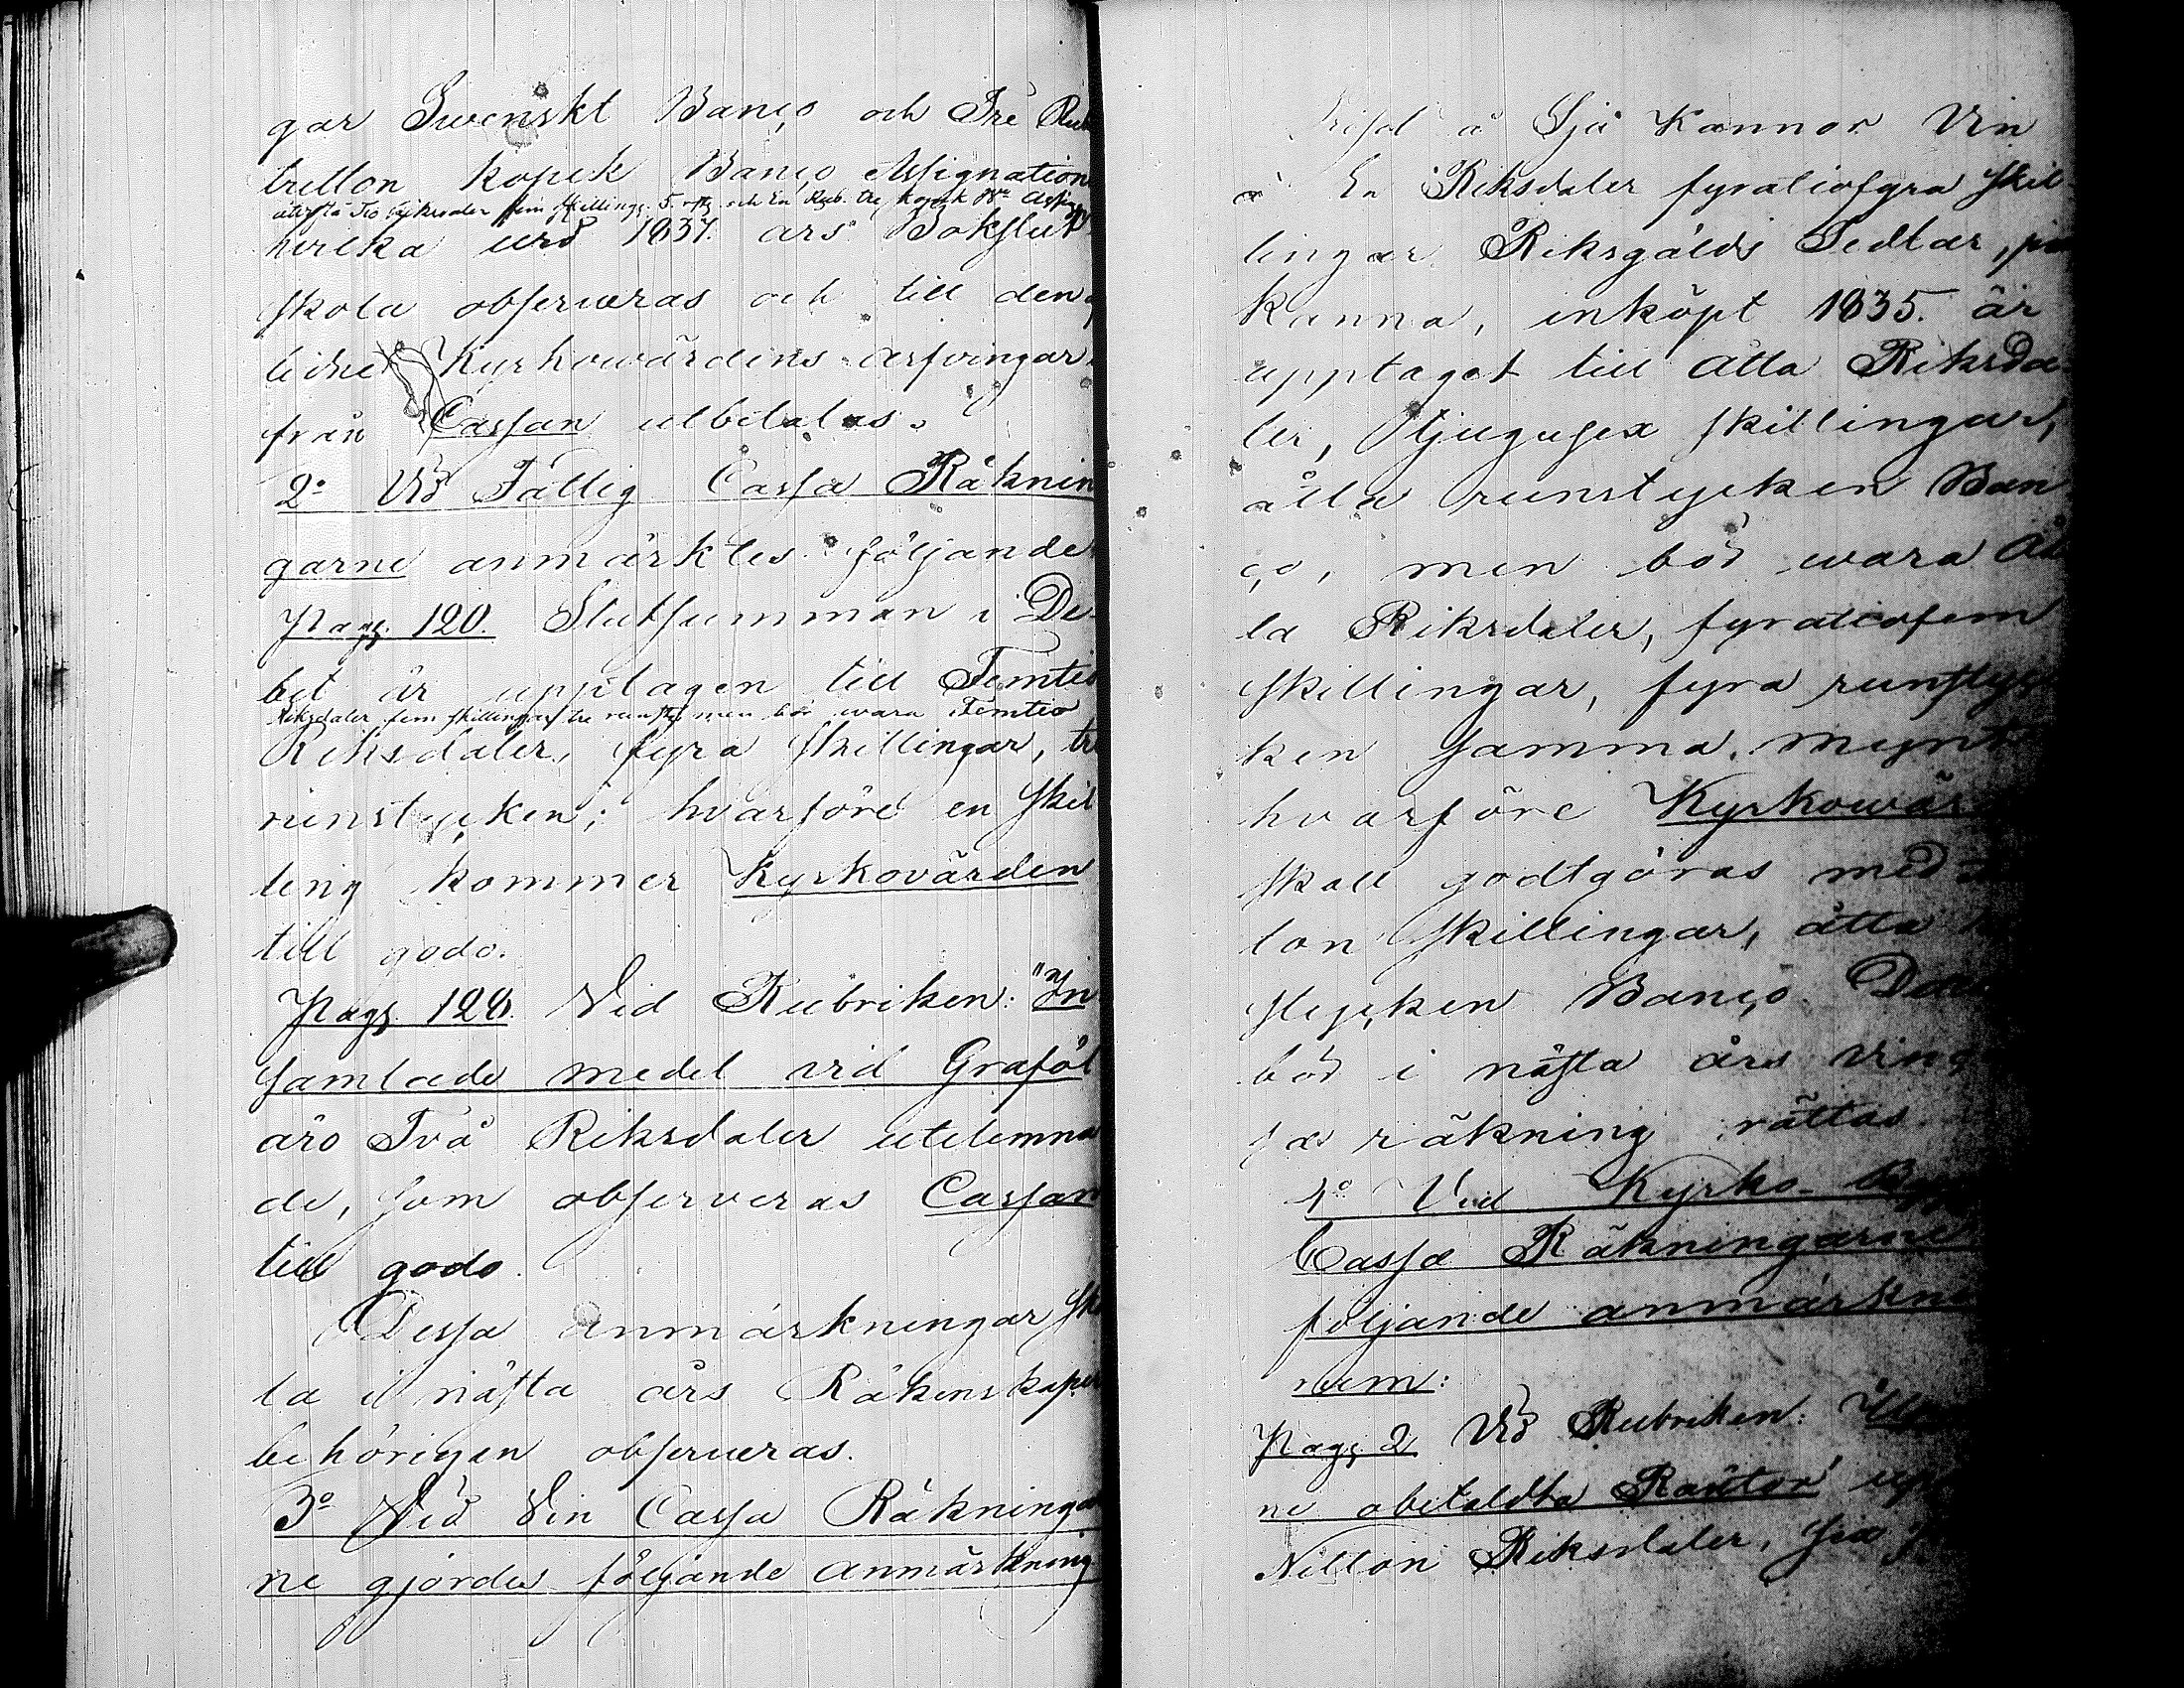 gar Swenskt Banco och Tre Rub
tretton kopek Banco Assignation
återstå Tio Riksdaler fem skillings. 5. rst. och En Rub. tre kopek
hvilka vid 1837. års Bokslut
skola observeras och till den af
lidne Kyrkowärdens arfvingar
från Cassan utbetalas.
2:o Vid Fattig Cassa Räknin
garne anmärktes följande
Pag. 120. Slutsumman i De-
bet är upptagen till Femtio
Riksdaler fem skillingar tre runst. men bör wara Femtio
Riksdaler, fyra skillingar, tre
runstycken; hvarföre en skil
ling kommer Kyrkovärden
till godo.
Pag. 128. Vid Rubriken: "In
samlade medel vid Graföl
äro Två Riksdaler utelemna
de, som observeras Cassan
till godo.
Dessa anmärkningar sko
la i nästa års Räkenskaper
behörigen observeras.
3:o Vid Vin Cassa Räkningar
ne gjordes följande anmärkning
Priset å Sju Kannor Vin
à En Riksdaler fyratiofyra skil
lingar Riksgälds Sedlar, pr
Kanna, inköpt 1835. är
upptaget till Åtta Riksda-
ler, tjugusex skillingar,
åtta runstycken Ban
co, men bör wara Åt
ta Riksdaler, fyratiofem
skillingar, fyra runstyc
ken samma mynt
hvarföre Kyrkowär
skall godtgöras med
ton skillingar, åtta
stycken Banco.
bör i nästa års Vin
sa räkning rättas
4:o Vid Kyrko-
Cassa Räkningarne
följande anmärkni
nem:
Pag. 2 Vid Rubriken:
ne obetaldta Räntor
Nitton Riksdaler, sju